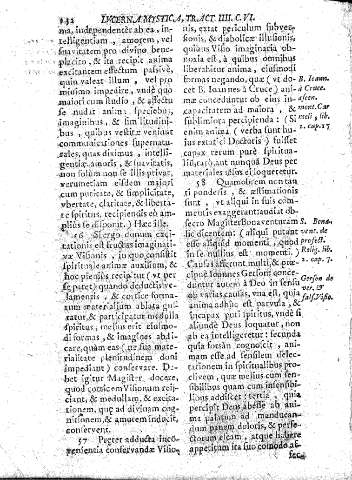 232 LUCERNA MYSTICA, TRACT. IIII. C.VI.
ma, independenter ab ea, in-
telligentiam, amorem, vel
suavitatem pro divino bene-
placito, & ita recipit anima
excitantem effectum passivè,
quin valeat illum, vel mi-
nimum impedire, undè quò
maiori cum studio, & affectu
se nudat anima speciebus,
imaginibus, & similitudini-
bus, quibus vestitæ veniunt
communicationes supernatu-
rales, quas divinus, intelli-
gentiæ, amoris, & suavitatis,
non solum non se illis privat,
verumetiam eisdem maiori
cum puritate, & simplicitate,
ubertate, claritate, & liberta-
te spiritus, recipiendis eò am-
plius se disponit. ) Hæc ille.
56 Si ergo donum exci-
tationis est fructus imaginati-
væ Visionis, in quo consistit
spirituale animæ auxilium, &
hoc plenius recipitur (vt per
se patet) quando deductis ve-
lamentis, & cortice forma-
rum materialium ablata gu-
statur, & participatur medulla
spiritus, melius erit eiusmo-
di formas, & imagines abdi-
care, quàm eas (ne sua mate-
rialitate plenitudinem doni
impediant) conservare. De-
bet igitur Magister, docere,
quod corticem Visionum reij-
ciant, & medullam, & excita-
tionem, quæ ad divinam cog-
nitionem, & amorem inducit,
conservent.
57 Præter adductà inco-
venientia conservandæ Visio-
nis, extat periculum subver-
sionis, & diabolicæ illusionis,
quia si Visio imaginaria ob-
noxia est, à quibus omnibus
liberabitur anima, eiusmodi
formas negando, quæ (vt do-
cet B. Ioannes à Cruce) ani-
mæ conceduntur ob eius in-
capacitatem ad maiora, &
sublimiora percipienda: (Si
enim anima (verba sunt hu-
ius extatici Doctoris) fuisset
capax rerum purè spiritua-
lium, raro, aut nunquam Deus per
materiales istas ei loqueretur.
58 Quamobrem non tan-
ti ponderis, & æstimationis
sunt, vt aliqui in suis com-
mensuris exaggerant audiat ob-
secro Magister Bonaventuram S.
dicentem: (aliqui putant
esse aliquid momenti, quod
in se nullius est momenti.)
Causæ asserunt multi, & præ-
cipuè Ioannes Gerson: conce-
duntur autem à Deo in sensu
ob varias causas, vna est, quia
anima adhuc est parvula, &
incapax puri spiritus, vnde si
aliundè Deus loquatur, non
ab ea intelligeretur: secunda
quia forsàn cognoscit, ani-
mam esse ad sensilem delec-
tationem in spiritualibus pro-
clivem, quæ melius cum sen-
sibilibus quàm cum insensibi-
libus addiscet: tertia, quia
percipit Deus abesse ab ani-
ma palatum ad manducan-
dum panem doloris, & perfe-
ctorum escam, atque ideò ere
appetitum ita suo commodo at-
fec-
B. Ioann.
à Cruce.
ascen.
mont. Car
meli, lib.
2. cap. 17
S. Bona-
vent. de
profess.
Relig. lib.
2. cap. 7.
Gerson de
ver. &
fals. Visio.